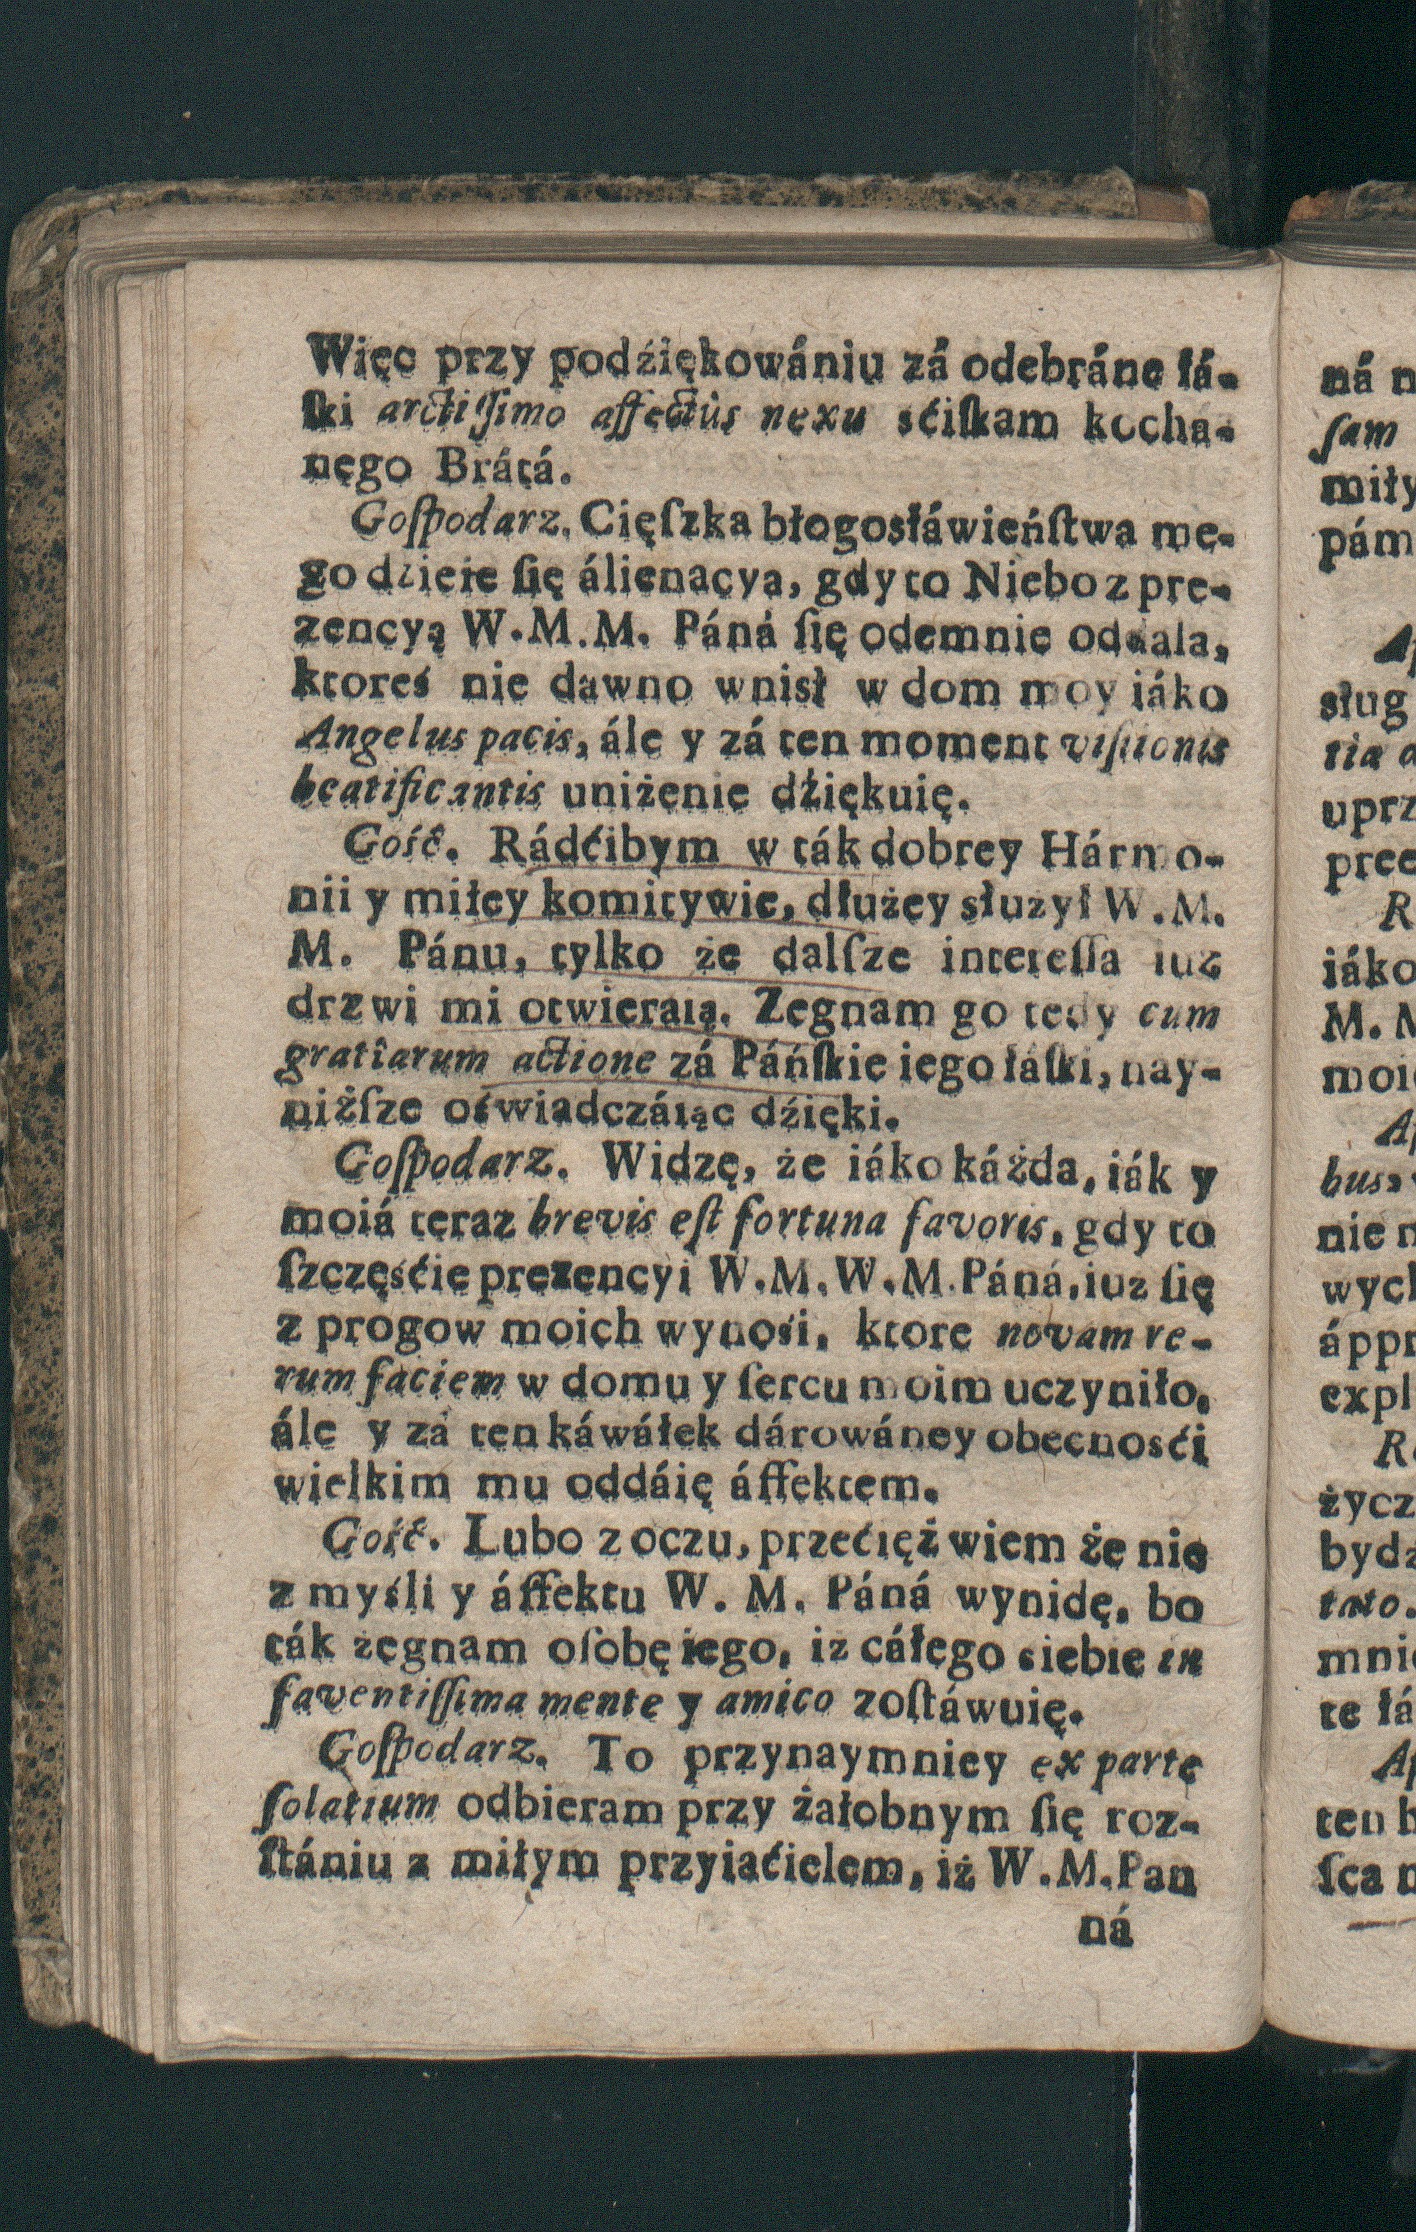 Więc przy podźiękowániu zá odebráne łá-
ſki arctiſſimo affectûs nexu sćiſkam kocha-
nego Brátá.
Goſpodarz. Cięſzka błogosłáwieńſtwa me-
go dzieie ſię álienacya, gdy to Niebo z pre-
zencyą W.M.M. Páná ſię odemnie oddala,
ktoreś nie dawno wnisł w dom moy iáko
Angelus pacis, ále y zá ten moment viſiionis
beatificantis uniżenie dźiękuię.
Gość. Rádćibym w ták dobrey Hármo-
nii y miłey komitywie, dłużey słuzył W.M.
M. Pánu, tylko że dalſze intereſſa iuz
drzwi mi otwieraią. Zegnam go tedy cum
gratîarum actione zá Páńſkie iego łáſki, nay-
niżſze oświadczáiąc dźięki.
Goſpodarz. Widzę, że iáko káżda, iák y
moiá teraz brevis eſt fortuna favoris, gdy to
ſzczęśćie prezencyi W.M.W.M.Páná, iuz ſię
z progow moich wynosi, ktore novam re-
rum faciem w domu y ſercu moim uczyniło,
ále y zá ten káwáłek dárowáney obecnosći
wielkim mu oddáię áffektem.
Gość. Lubo z oczu, przećięż wiem że nie
z myśli y áffektu W. M. Páná wynidę, bo
ták żegnam oſobę iego, iz cáłego siebie in
faventiſſima mente y amico zoſtáwuię.
Goſpodarz. To przynaymniey ex parte
ſolatium odbieram przy żałobnym ſię roz-
ſtániu z miłym przyiaćielem, iż W.M.Pan
ná
ná
ſam
miły
pám
sług
tia
uprz
R
iáko
M.
bus,
nie
wych
áppr
expl
życz
tato.
te łá
ten
ſca